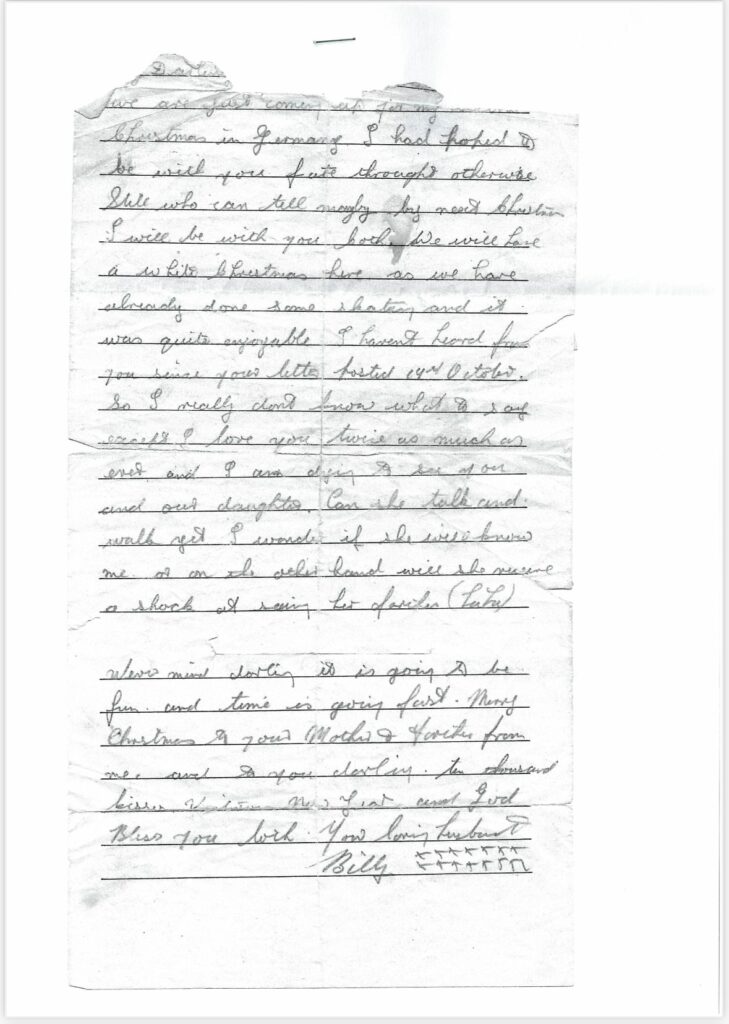 Darling
we are just coming up for my
Christmas in Germany I had hoped to
be with you fate throught otherwise
Still who can tell maybe by next Christmas
I will be with you both. We will have
a white Christmas here as we have
already done some skating and it
was quite enjoyable I havent heard from
you since your letter posted October.
So I really dont know what to say
except I love you twice as much as
ever and I am dying to see you
and our daughter. Can she talk and
walk yet I wonder if she will know
me or on the other hand will she receive
a shock at seeing her farther (haha)
Never mind darling it is going to be
fun. and time is going fast. Merry
Christmas to your Mother & Farther from
me. and to you darling. ten thousand
kisses New Year and God
Bless you both. Your loving husband
Billy